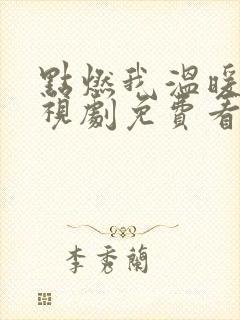 點燃我溫暖
視劇免費看
李秀蘭